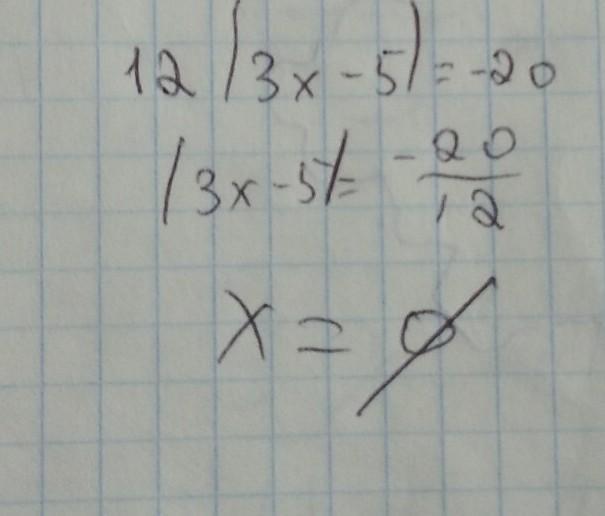 12 |3x - 5| = -20
|3x - 5| = -20/12
x = ∅